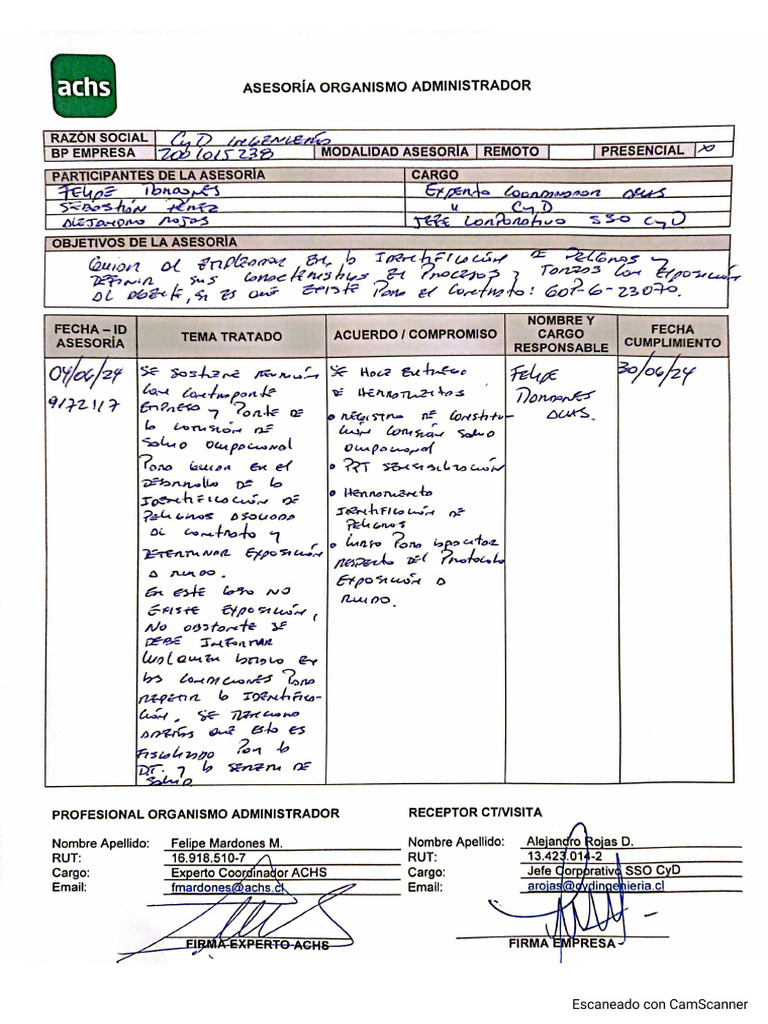 achs
ASESORÍA ORGANISMO ADMINISTRADOR
RAZÓN SOCIAL CyD INGENIERÍA
BP EMPRESA 2001015238 MODALIDAD ASESORÍA REMOTO PRESENCIAL X
PARTICIPANTES DE LA ASESORÍA CARGO
FELIPE MARDONES EXPERTO COORDINADOR ACHS
SEBASTIÁN PÉREZ " CyD
ALEJANDRO ROJAS JEFE CORPORATIVO SSO CyD
OBJETIVOS DE LA ASESORÍA
GUIAR AL EMPLEADOR EN LA IDENTIFICACIÓN DE PELIGROS Y
DEFINIR SUS CARACTERISTICAS EN PROCESOS Y TAREAS CON EXPOSICIÓN
AL AGENTE, SI ES QUE EXISTE PARA EL CONTRATO: 607-6-23070.
FECHA – ID ASESORÍA
TEMA TRATADO
ACUERDO / COMPROMISO
NOMBRE Y CARGO RESPONSABLE
FECHA CUMPLIMIENTO
04/06/24
9172117
SE SOSTIENE REUNIÓN
CON CONTRAPARTE
EMPRESA Y PARTE DE
LA COMISIÓN DE
SALUD OCUPACIONAL
PARA GUIAR EN EL
DESARROLLO DE LA
IDENTIFICACIÓN DE
PELIGROS ASOCIADA
AL CONTRATO Y
DETERMINAR EXPOSICIÓN
A RUIDO.
EN ESTE CASO NO
EXISTE EXPOSICIÓN,
NO OBSTANTE SE
DEBE INFORMAR
CUALQUIER CAMBIO EN
LAS CONDICIONES PARA
REPETIR LA IDENTIFICA-
CIÓN. SE MENCIONA
ADEMÁS QUE ESTO ES
FISCALIZADO POR LA
DT. Y LA SEREMI DE
SALUD
SE HACE ENTREGA
DE HERRAMIENTAS
• REGISTRO DE CONSTITU-
CIÓN COMISIÓN SALUD
OCUPACIONAL
• PPT SENSIBILIZACIÓN
• HERRAMIENTA
IDENTIFICACIÓN DE
PELIGROS
• CURSO PARA CAPACITAR
RESPECTO DEL PROTOCOLO
EXPOSICIÓN A
RUIDO.
FELIPE
MARDONES
ACHS.
30/06/24
PROFESIONAL ORGANISMO ADMINISTRADOR
Nombre Apellido: Felipe Mardones M.
RUT: 16.918.510-7
Cargo: Experto Coordinador ACHS
Email: fmardones@achs.cl
FIRMA EXPERTO ACHS
RECEPTOR CT/VISITA
Nombre Apellido: Alejandro Rojas D.
RUT: 13.423.014-2
Cargo: Jefe Corporativo SSO CyD
Email: arojas@cydingenieria.cl
FIRMA EMPRESA
Escaneado con CamScanner